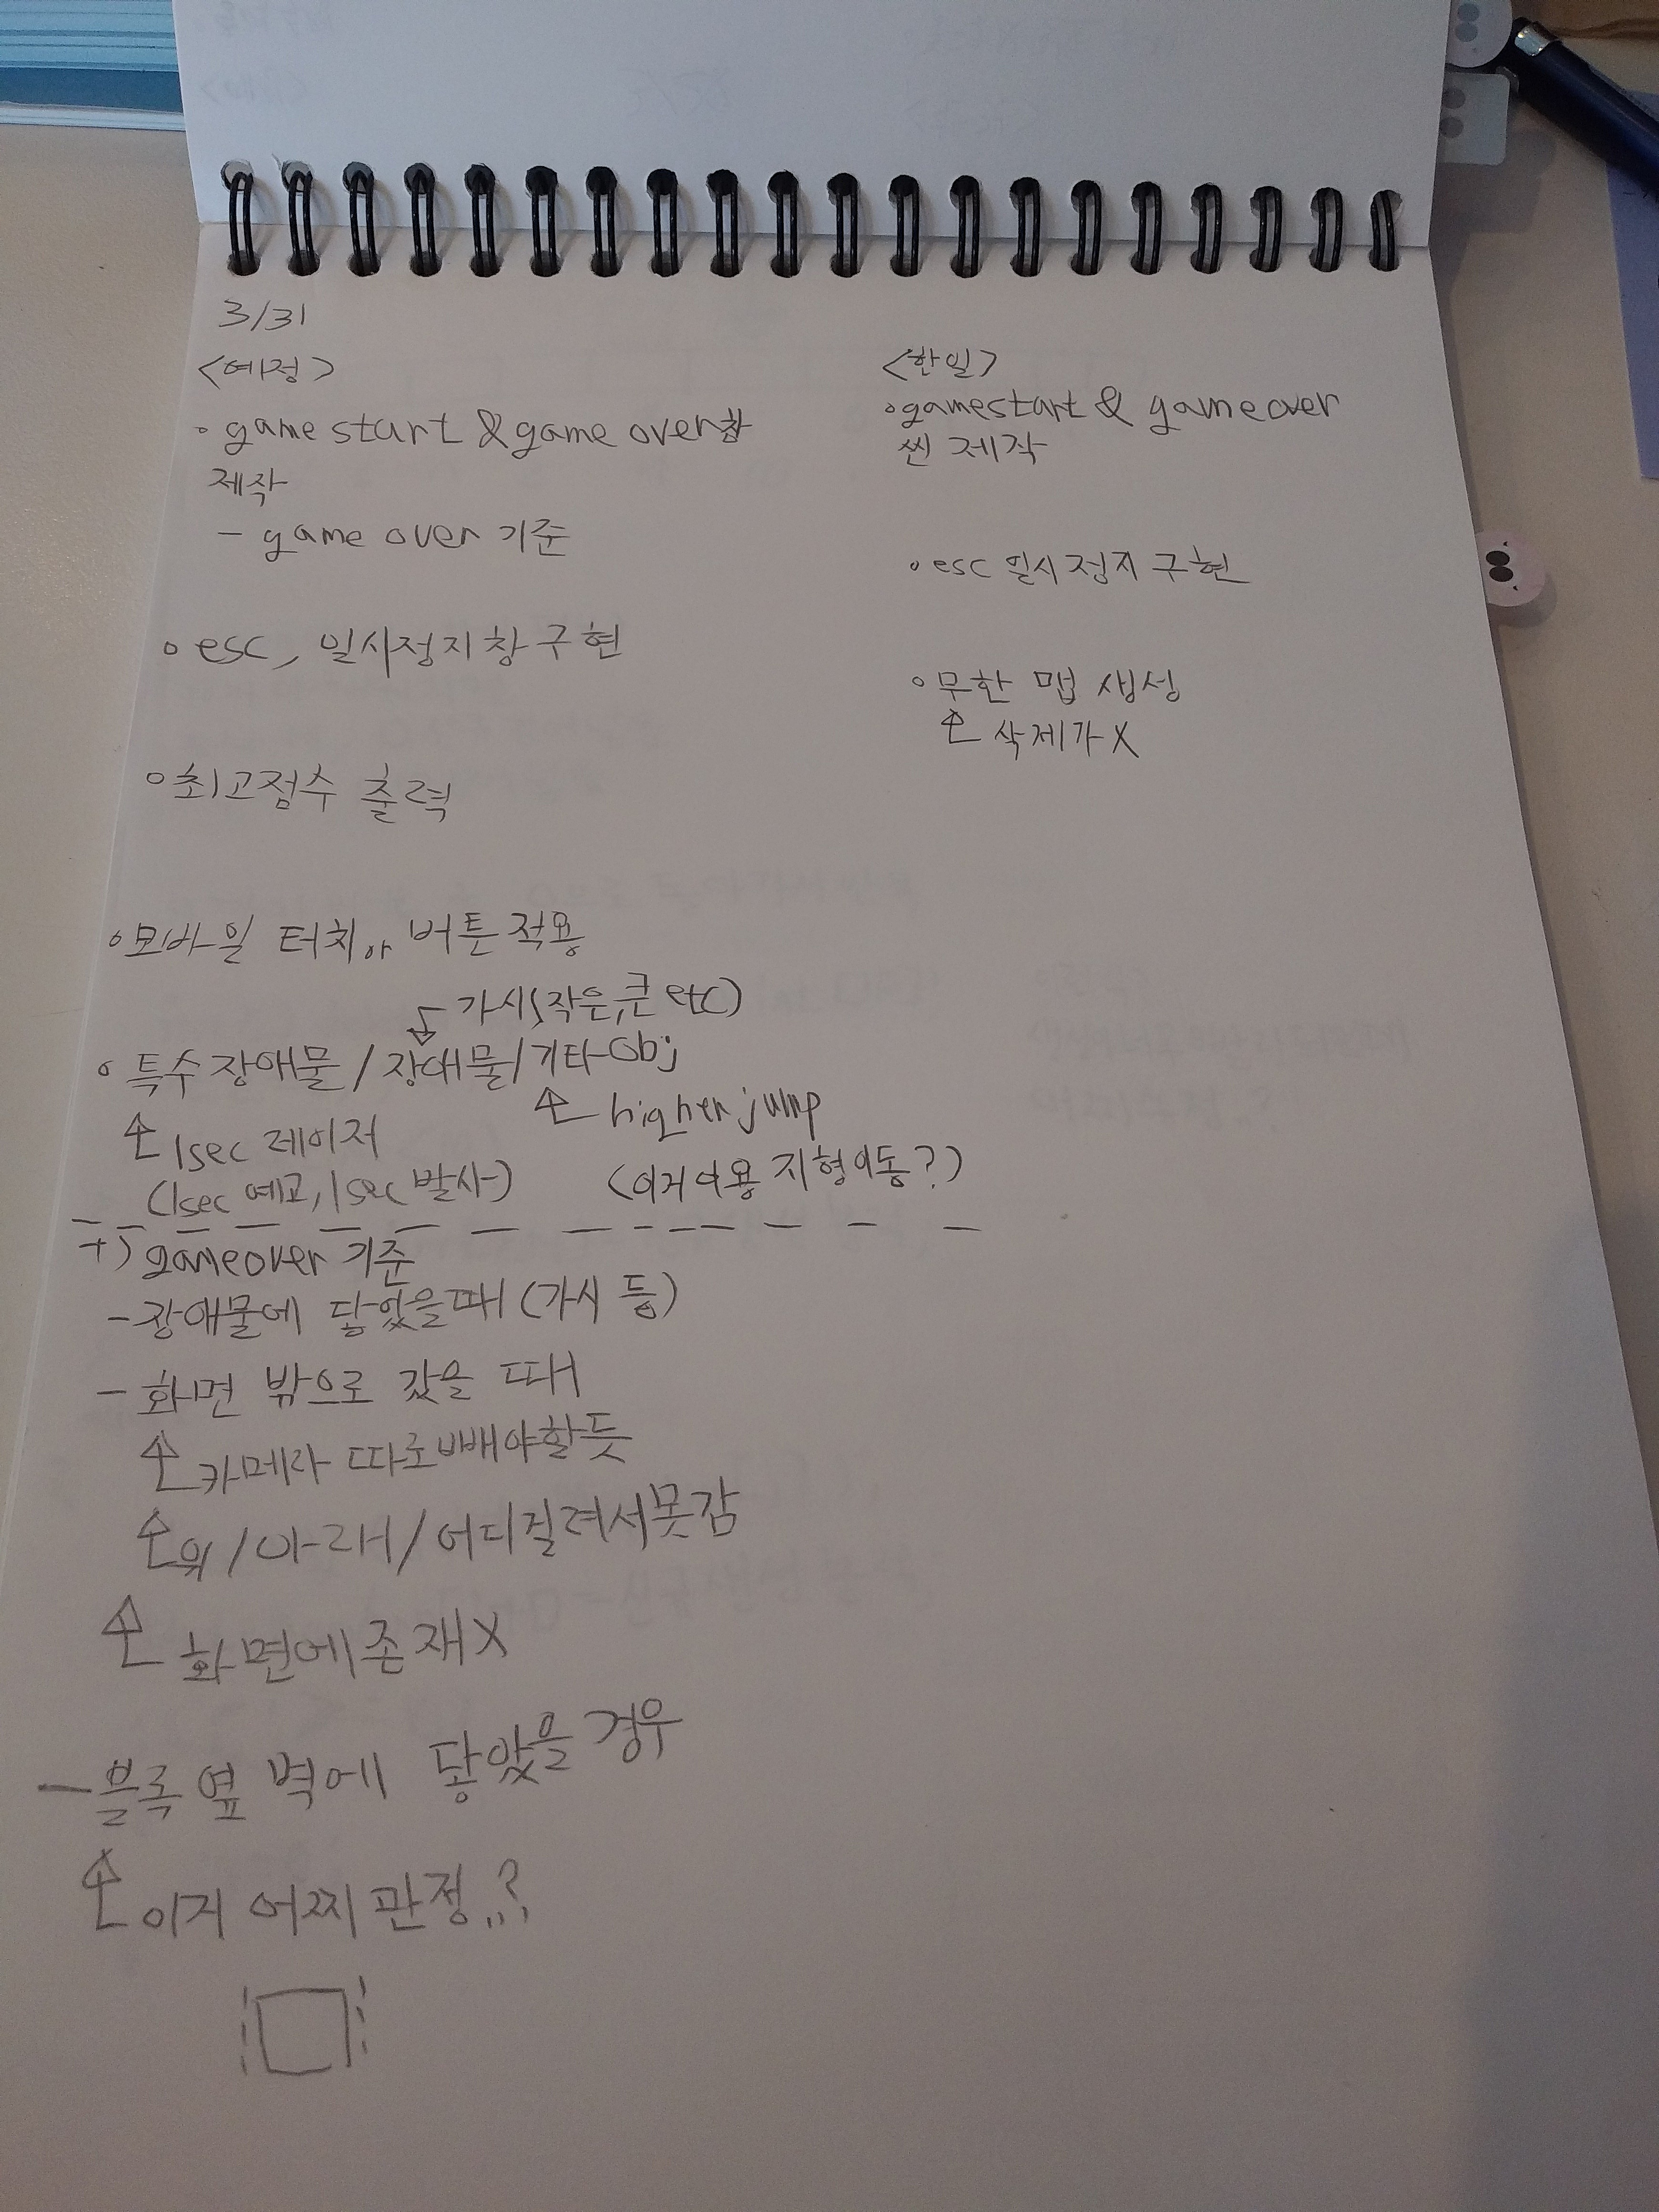 3/31
<예정>
◦ game start & game over창
제작
- game over 기준
◦ esc, 일시정지 창 구현
◦ 최고점수 출력
◦ 모바일 터치or 버튼 적용
가시(작은,큰 etc)
◦ 특수 장애물 / 장애물 / 기타 obj
↑ 1sec 레이저
(1sec 예고, 1sec 발사)
↑ higher jump
(이거 이용 지형이동?)
+) gameover 기준
- 장애물에 닿았을때 (가시 등)
- 화면 밖으로 갔을 때
↑ 카메라 따로빼야할듯
↑ 위/아래/어디걸려서못감
↑ 화면에존재X
- 블록 옆 벽에 닿았을 경우
↑ 이거 어찌 판정..?
<한일>
◦ gamestart & gameover
씬 제작
◦ esc 일시정지 구현
◦ 무한 맵 생성
↑ 삭제가 X